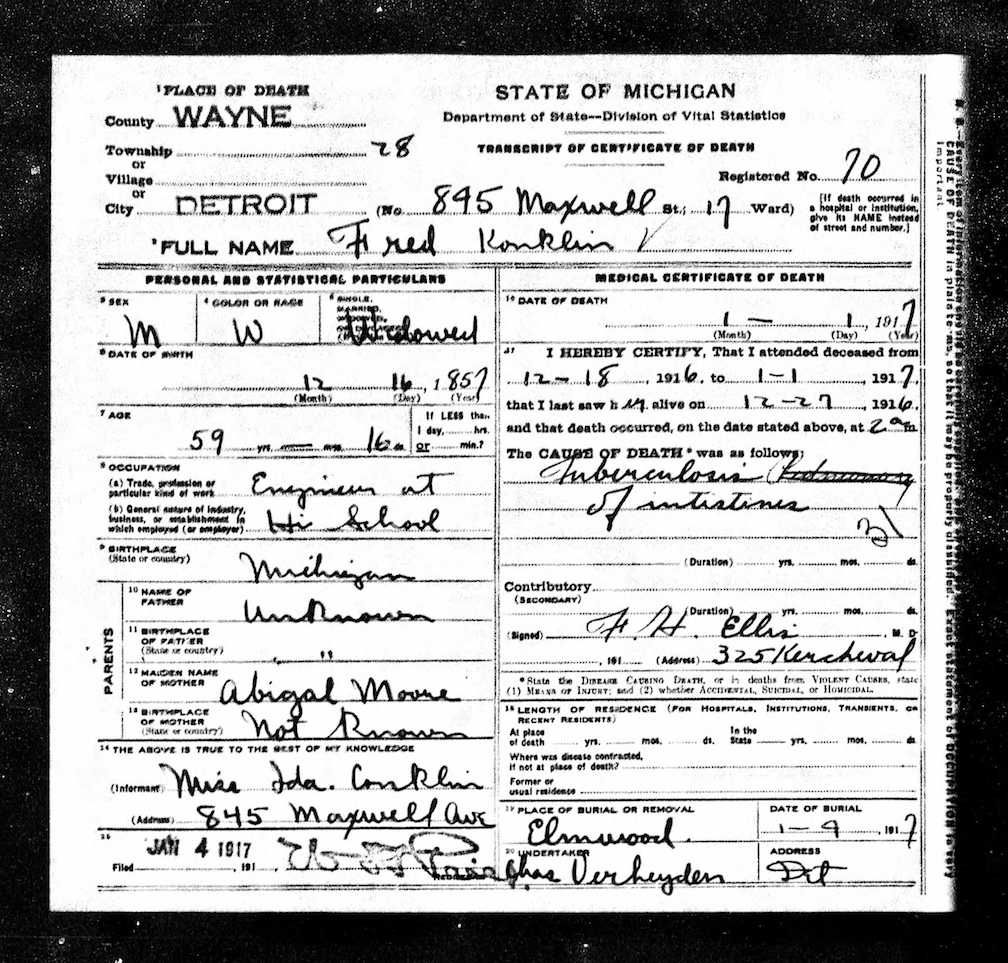 ¹PLACE OF DEATH
County WAYNE
Township 28
or
Village
or
City DETROIT
STATE OF MICHIGAN
Department of State--Division of Vital Statistics
TRANSCRIPT OF CERTIFICATE OF DEATH
Registered No. 70
(No 845 Maxwell St.; 17 Ward)
[If death occurred in
a hospital or institution,
give its NAME instead
of street and number.]
²FULL NAME Fred Konklin
PERSONAL AND STATISTICAL PARTICULARS
³ SEX
M
⁴ COLOR OR RACE
W
⁵ SINGLE,
MARRIED,
Widowed
⁶ DATE OF BIRTH
12 16, 1857
(Month) (Day) (Year)
⁷ AGE
59 yrs. — mos. 16 ds.
If LESS than
1 day, hrs.
or min.?
⁸ OCCUPATION
(a) Trade, profession or
particular kind of work Engineer at
(b) General nature of industry,
business, or establishment in
which employed (or employer) Hi School
⁹ BIRTHPLACE
(State or country) Michigan
PARENTS
¹⁰ NAME OF
FATHER Unknown
¹¹ BIRTHPLACE
OF FATHER
(State or country) "
¹² MAIDEN NAME
OF MOTHER Abigal Moore
¹³ BIRTHPLACE
OF MOTHER
(State or country) Not Known
¹⁴ THE ABOVE IS TRUE TO THE BEST OF MY KNOWLEDGE
(Informant) Miss Ida. Conklin
(Address) 845 Maxwell Ave
¹⁵
Filed JAN 4 1917, 191
MEDICAL CERTIFICATE OF DEATH
¹⁶ DATE OF DEATH
1 — 1, 1917
(Month) (Day) (Year)
¹⁷ I HEREBY CERTIFY, That I attended deceased from
12-18, 1916, to 1-1, 1917,
that I last saw him alive on 12-27, 1916,
and that death occurred, on the date stated above, at 2 am
The CAUSE OF DEATH* was as follows:
Tuberculosis (Pulmonary
of intestines
31
(Duration) yrs. mos. ds.
Contributory
(SECONDARY)
(Duration) yrs. mos. ds.
(Signed) F. H. Ellis, M. D.
, 191 (Address) 325 Kercheval
*State the DISEASE CAUSING DEATH, or in deaths from VIOLENT CAUSES, state
(1) MEANS OF INJURY; and (2) whether ACCIDENTAL, SUICIDAL, or HOMICIDAL.
¹⁸ LENGTH OF RESIDENCE (FOR HOSPITALS, INSTITUTIONS, TRANSIENTS, OR
RECENT RESIDENTS)
At place
of death yrs. mos. ds.
In the
State yrs. mos. ds.
Where was disease contracted,
if not at place of death?
Former or
usual residence
¹⁹ PLACE OF BURIAL OR REMOVAL
Elmwood.
DATE OF BURIAL
1-9, 1917
²⁰ UNDERTAKER
Chas Verheyden
ADDRESS
Det
CAUSE OF DEATH in plain terms, so that it may be properly classified. Exact statement of OCCUPATION is very
important.